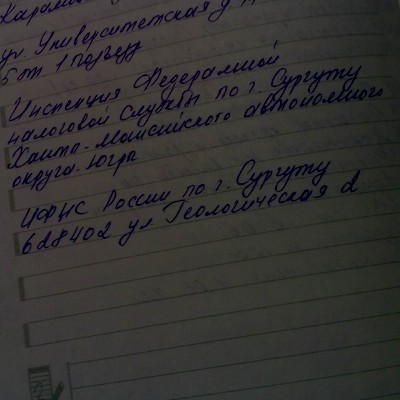 ул. Университетская
5 эт 1 подъезд
Инспекция Федеральной
налоговой службы по г. Сургуту
Ханты-Мансийского автономного
округа-Югры
ИФНС России по г. Сургуту
628402 ул Геологическая 2